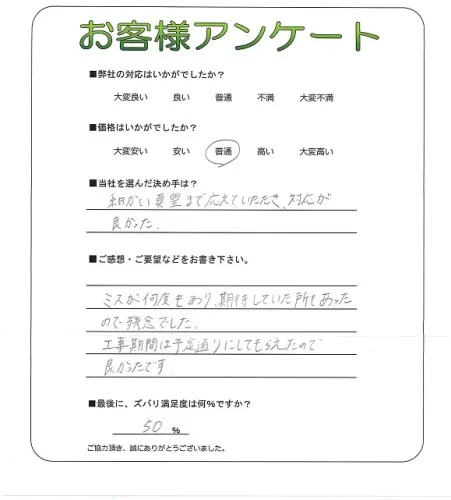 お客様アンケート
■弊社の対応はいかがでしたか？
大変良い 良い 普通 不満 大変不満
■価格はいかがでしたか？
大変安い 安い 普通 高い 大変高い
■当社を選んだ決め手は？
細かい要望まで応えていただき、対応が
良かった.
■ご感想・ご要望などをお書き下さい。
ミスが何度もあり、期待していた所もあった
ので残念でした.
工事期間は予定通りにしてもらえたので
良かったです.
■最後に、ズバリ満足度は何%ですか？
50 %
ご協力頂き、誠にありがとうございました。